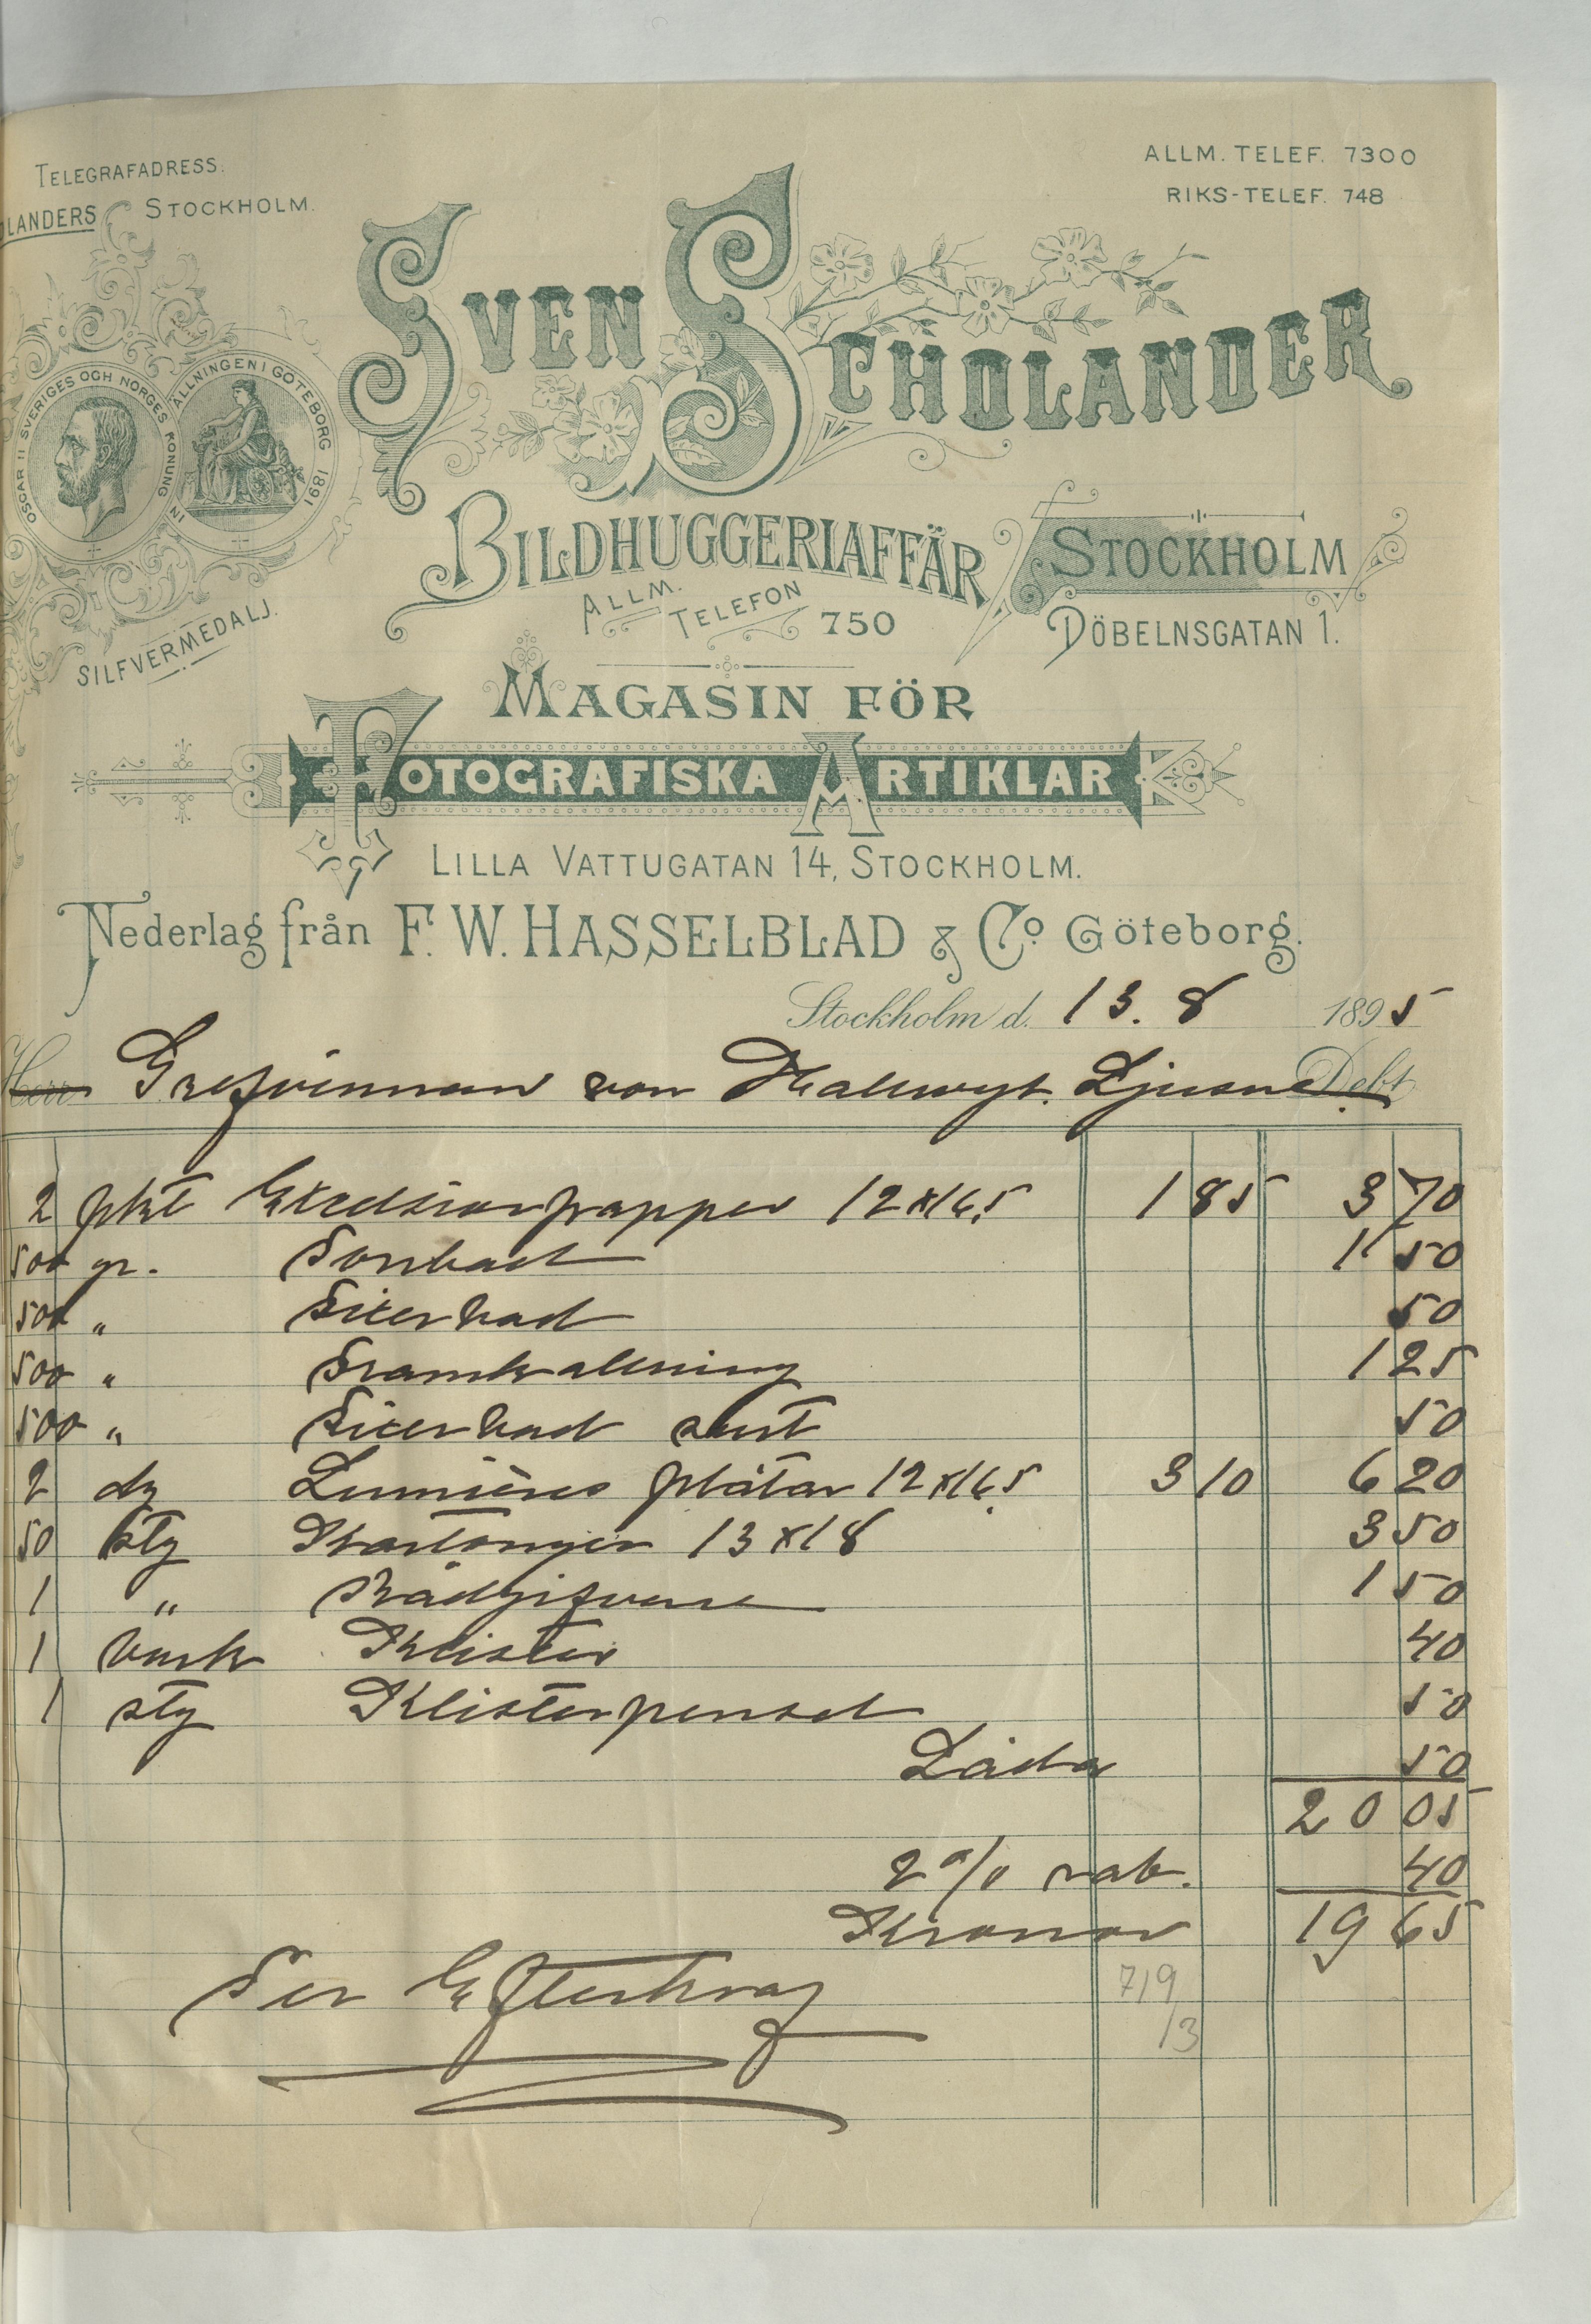 TELEGRAFADRESS.
OLANDERS STOCKHOLM.
ALLM. TELEF. 7300
RIKS-TELEF. 748
OSCAR II SVERIGES OCH NORGES KONUNG
IN ÄLLNINGEN I GÖTEBORG 1891
SILFVERMEDALJ.
SVEN SCHOLANDER
BILDHUGGERIAFFÄR
ALLM. TELEFON 750
STOCKHOLM
DÖBELNSGATAN 1.
MAGASIN FÖR
FOTOGRAFISKA ARTIKLAR
LILLA VATTUGATAN 14, STOCKHOLM.
Nederlag från F. W. HASSELBLAD & Co Göteborg.
Stockholm d. 13. 8 1895
Herr Grefvinnan von Hallwyl. Ljusne Debt
2 pkt Excelsiorpapper 12x16,5 1 85 3 70
500 gr. Tonbad 1 50
500 " Fixerbad 50
500 " Framkallning 1 25
500 " Fixerbad surt 50
2 dz Lumières plåtar 12x16,5 3 10 6 20
50 stg Kartonger 13x18 3 50
1 " Rådgifvare 1 50
1 burk Klister 40
1 stg Klisterpensel 50
Låda 50
20 05
2 % rab. 40
Kronor 19 65
Per Efterkrav
7/9
13